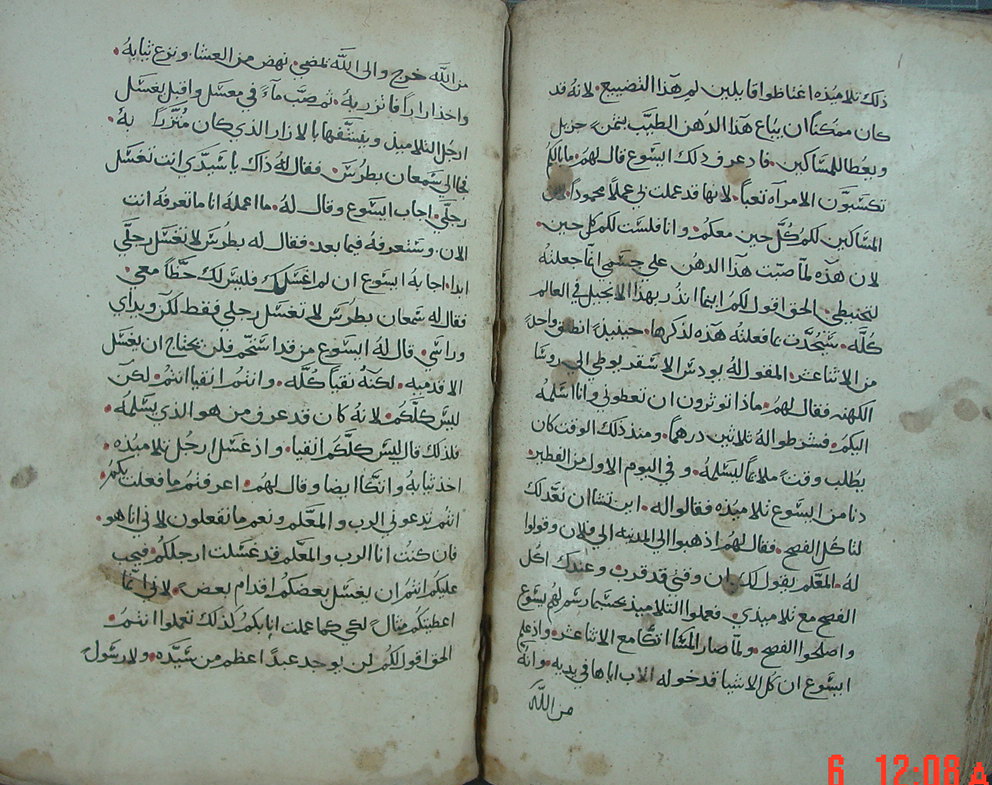 ذلك تلاميذه اغتاظوا قايلين لم هذا التضييع. لانه قد
كان ممكنا ان يباع هذا الدهن الطيب بثمن جزيل
ويعطا للمساكين. فاد عرف ذلك ايسوع قال لهم. ما بالكم
تكسبون الامراه تعبا. لانها قد عملت لي عملا محمودا. لان
المساكين لكم كل حين معكم. وانا فلست لكم كل حين.
لان هذه لما صبت هذا الدهن علي جسمي انما جعلته
لتحنيطي. الحق اقول لكم اينما انذر بهذا الانجيل في العالم
كله. سيتحدت بما فعلته هذه لذكرها. حينيذ انطلق واحد
من الاثناعشر. المقول له يودس الاسقريوطي الي روسا
الكهنه فقال لهم. ماذا توثرون ان تعطوني وانا اسلمه
اليكم. فشرطوا له ثلاثين درهما. ومنذ ذلك الوقت كان
يطلب وقتا ملايما ليسلمه. وفي اليوم الاول من الفطير.
دنا من ايسوع تلاميذه فقالوا له. اين تشا ان نعد لك
لناكل الفصح. فقال لهم اذهبوا الي المدينه الي فلان وقولوا
له. المعلم يقول لك. ان وقتي قد قرب وعندك اكل
الفصح مع تلاميذي. فعملوا التلاميذ بحسبما رسم لهم يسوع
واصلحوا الفصح. ولما صار المسا اتكا مع الاثناعشر. واذ علم
ايسوع ان كل الاشيا قد خوله الاب اياها في يديه. وانه
من الله
من الله خرج والى الله يمضي. نهض من العشا. ونزع ثيابه.
واخذ ازارا فاتزر به. ثم صب مآء في مغسل واقبل يغسل
ارجل التلاميذ وينشفها بالازار الذي كان متزرا به.
فجا الي سمعان بطرس. فقال له ذاك يا سيدي انت تغسل
رجلي. اجاب ايسوع وقال له. ما اعمله انا ما تعرفه انت
الان. وستعرفه فيما بعد. فقال له بطرس لا تغسل رجلي
ابدا. اجابه ايسوع ان لم اغسلك فليس لك حظا معي.
فقال له سمعان بطرس لا تغسل رجلي فقط لكن ويداي
وراسي. قال له ايسوع من قد استحم فلن يحتاج ان يغسل
الا قدميه. لكنه نقيا كله. وانتم انقيا انتم. لكن
ليس كلكم. لانه كان قد عرف من هو الذي يسلمه.
فلذلك قال ليس كلكم انقيا. واذ غسل ارجل تلاميذه.
اخذ ثيابه واتكا ايضا وقال لهم. اعرفتم ما فعلت بكم.
انتم تدعوني الرب والمعلم ونعم ما تفعلون لاني انا هو.
فان كنت انا الرب والمعلم قد غسلت ارجلكم فيجب
عليكم انتم ان يغسل بعضكم اقدام بعض. لاني انما
اعطيتكم مثالا لكي كما عملت انا بكم كذلك تعملوا انتم.
الحق اقول لكم لن يوجد عبدا اعظم من سيده. ولا رسولا
6 12:08 A